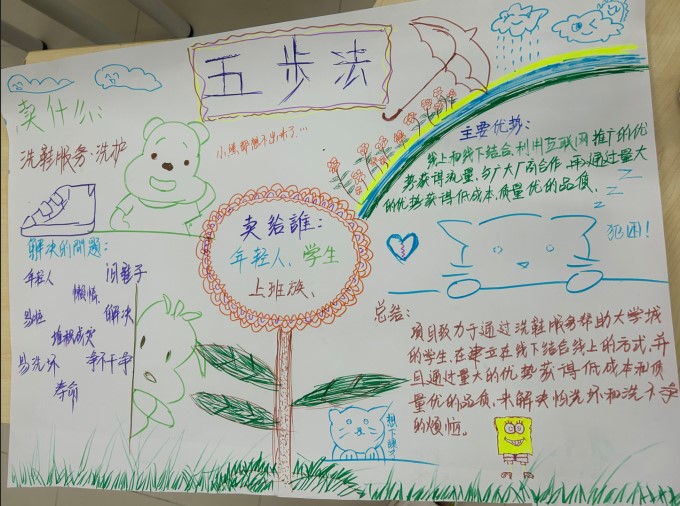 五步法
卖什么:
洗鞋服务:洗护
小熊都想不出来了...
主要优势:
线上和线下结合,利用互联网推广的优
势获得流量,与厂大厂商合作,再通过量大
的优势获得低成本,质量优的品质、
z z z
犯困!
卖给誰:
年轻人、学生
上班族、
解决的問題:
年轻人
闷鞋子
懒惰、
易怕
解决
堆积成灾
易洗坏
净不干净
寿命
总结:
项目致力于通过洗鞋服务帮助大学城
的学生,在建立在线下结合线上的方式,并
且通过量大的优势获得低成本和质
量优的品质、来解决怕洗坏和洗不净
的烦恼。